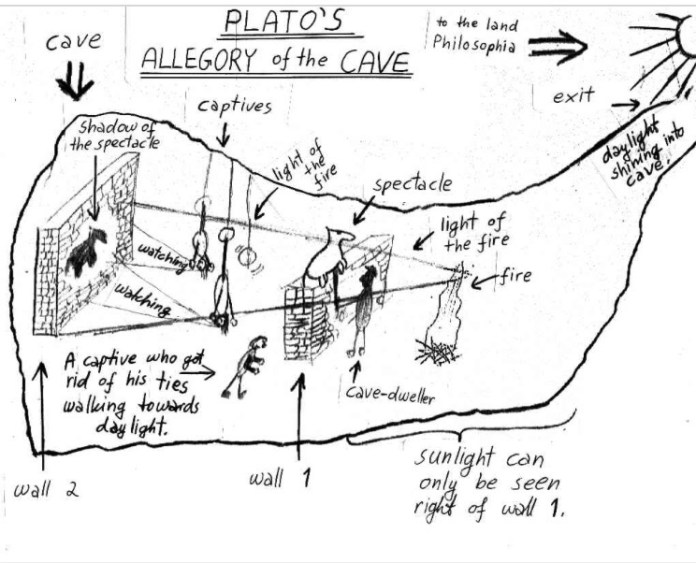 PLATO'S
ALLEGORY of the CAVE
to the land
Philosophia
cave
exit
captives
daylight
shining into
cave.
shadow of
the spectacle
light of
the
fire
spectacle
light of
the fire
fire
watching
watching
A captive who got
rid of his ties
walking towards
daylight.
cave-dweller
wall 2
wall 1
sunlight can
only be seen
right of wall 1.